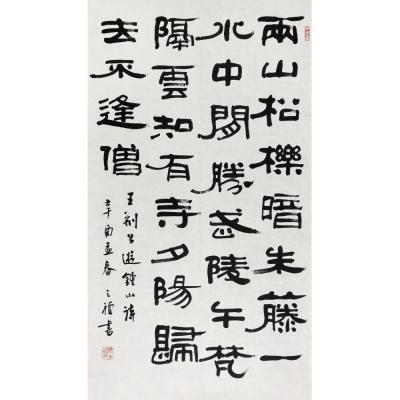 兩山松櫟暗朱藤一
水中間勝武陵午梵
隔雲知有寺夕陽歸
去不逢僧
王荆公遊鍾山詩
辛酉孟春之書